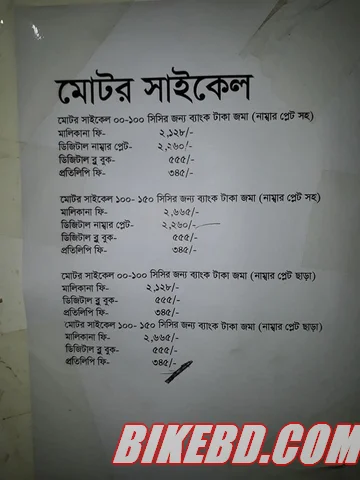 মোটর সাইকেল
মোটর সাইকেল ০০-১০০ সিসির জন্য ব্যাংক টাকা জমা (নাম্বার প্লেট সহ)
মালিকানা ফি- ২,১২৮/-
ডিজিটাল নাম্বার প্লেট- ২,২৬০/-
ডিজিটাল ব্লু বুক- ৫৫৫/-
প্রতিলিপি ফি- ৩৪৫/-
মোটর সাইকেল ১০০- ১৫০ সিসির জন্য ব্যাংক টাকা জমা (নাম্বার প্লেট সহ)
মালিকানা ফি- ২,৬৬৫/-
ডিজিটাল নাম্বার প্লেট- ২,২৬০/-
ডিজিটাল ব্লু বুক- ৫৫৫/-
প্রতিলিপি ফি- ৩৪৫/-
মোটর সাইকেল ০০-১০০ সিসির জন্য ব্যাংক টাকা জমা (নাম্বার প্লেট ছাড়া)
মালিকানা ফি- ২,১২৮/-
ডিজিটাল ব্লু বুক- ৫৫৫/-
প্রতিলিপি ফি- ৩৪৫/-
মোটর সাইকেল ১০০- ১৫০ সিসির জন্য ব্যাংক টাকা জমা (নাম্বার প্লেট ছাড়া)
মালিকানা ফি- ২,৬৬৫/-
ডিজিটাল ব্লু বুক- ৫৫৫/-
প্রতিলিপি ফি- ৩৪৫/-
BIKEBD.COM